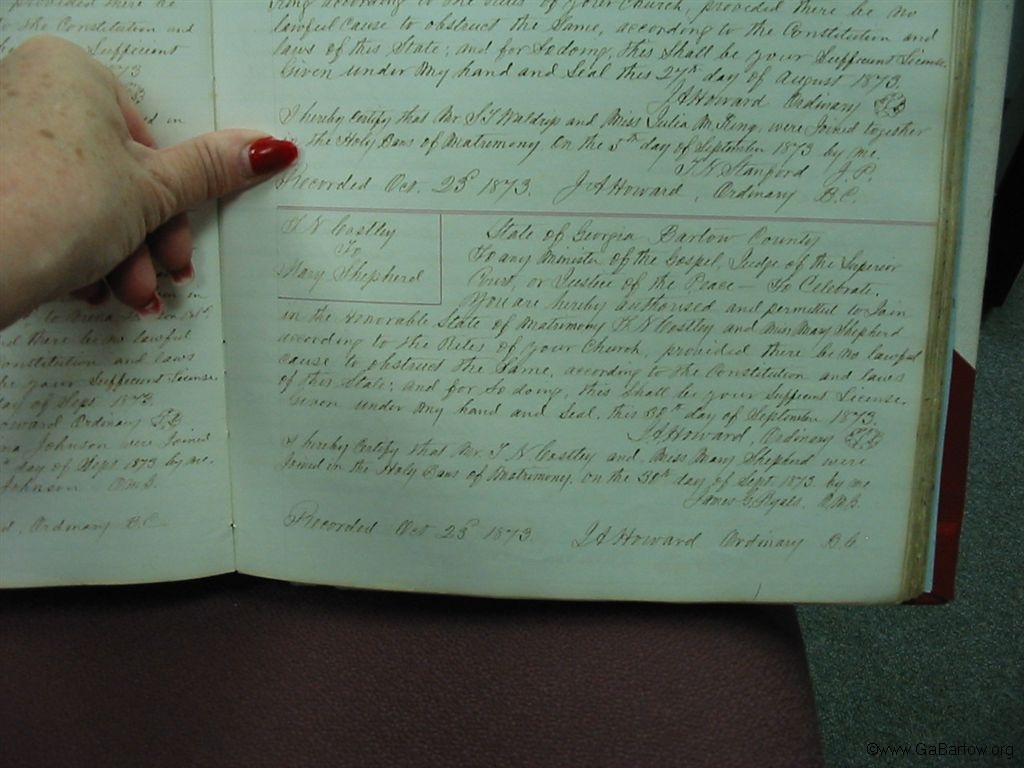 provided there be
the Constitution and
Sufficient
73
in
in
to
there be no lawful
Constitution and laws
be your Sufficient License.
day of Sept. 1873.
Howard Ordinary
Johnson were Joined
day of Sept 1873 by me.
Johnson
Ordinary B.C.
King according to the Rites of your Church, provided there be no
lawful Cause to obstruct the Same, according to the Constitution and
laws of this State; and for So doing, this Shall be your Sufficient License.
Given under My hand and Seal this 27th day of August 1873.
J A Howard Ordinary
I hereby Certify that Mr. Waldrip and Miss Julia M. King, were Joined together
in the Holy Bans of Matrimony On the 5th day of September 1873 by me.
Stanford J.P.
Recorded Oct. 23d 1873. J A Howard, Ordinary B.C.
N Costley
To
Mary Shepherd
State of Georgia Bartow County
To any Minister of the Gospel, Judge of the Superior
Court, or Justice of the Peace — To Celebrate.
You are hereby authorised and permitted to Join
in the Honorable State of Matrimony N Costley and Miss Mary Shepherd
according to the Rites of your Church, provided there be no lawful
cause to obstruct the Same, according to the Constitution and laws
of this State; and for So doing, this Shall be your Sufficient License.
Given under My hand and Seal, this day of September 1873.
J A Howard, Ordinary
I hereby Certify that Mr. N. Costley and Miss Mary Shepherd were
Joined in the Holy Bans of Matrimony, on the 30th day of Sept. 1873 by me
James G. Ryals. O.M.G.
Recorded Oct 23d 1873. J A Howard Ordinary B.C.
©www.GaBartow.org